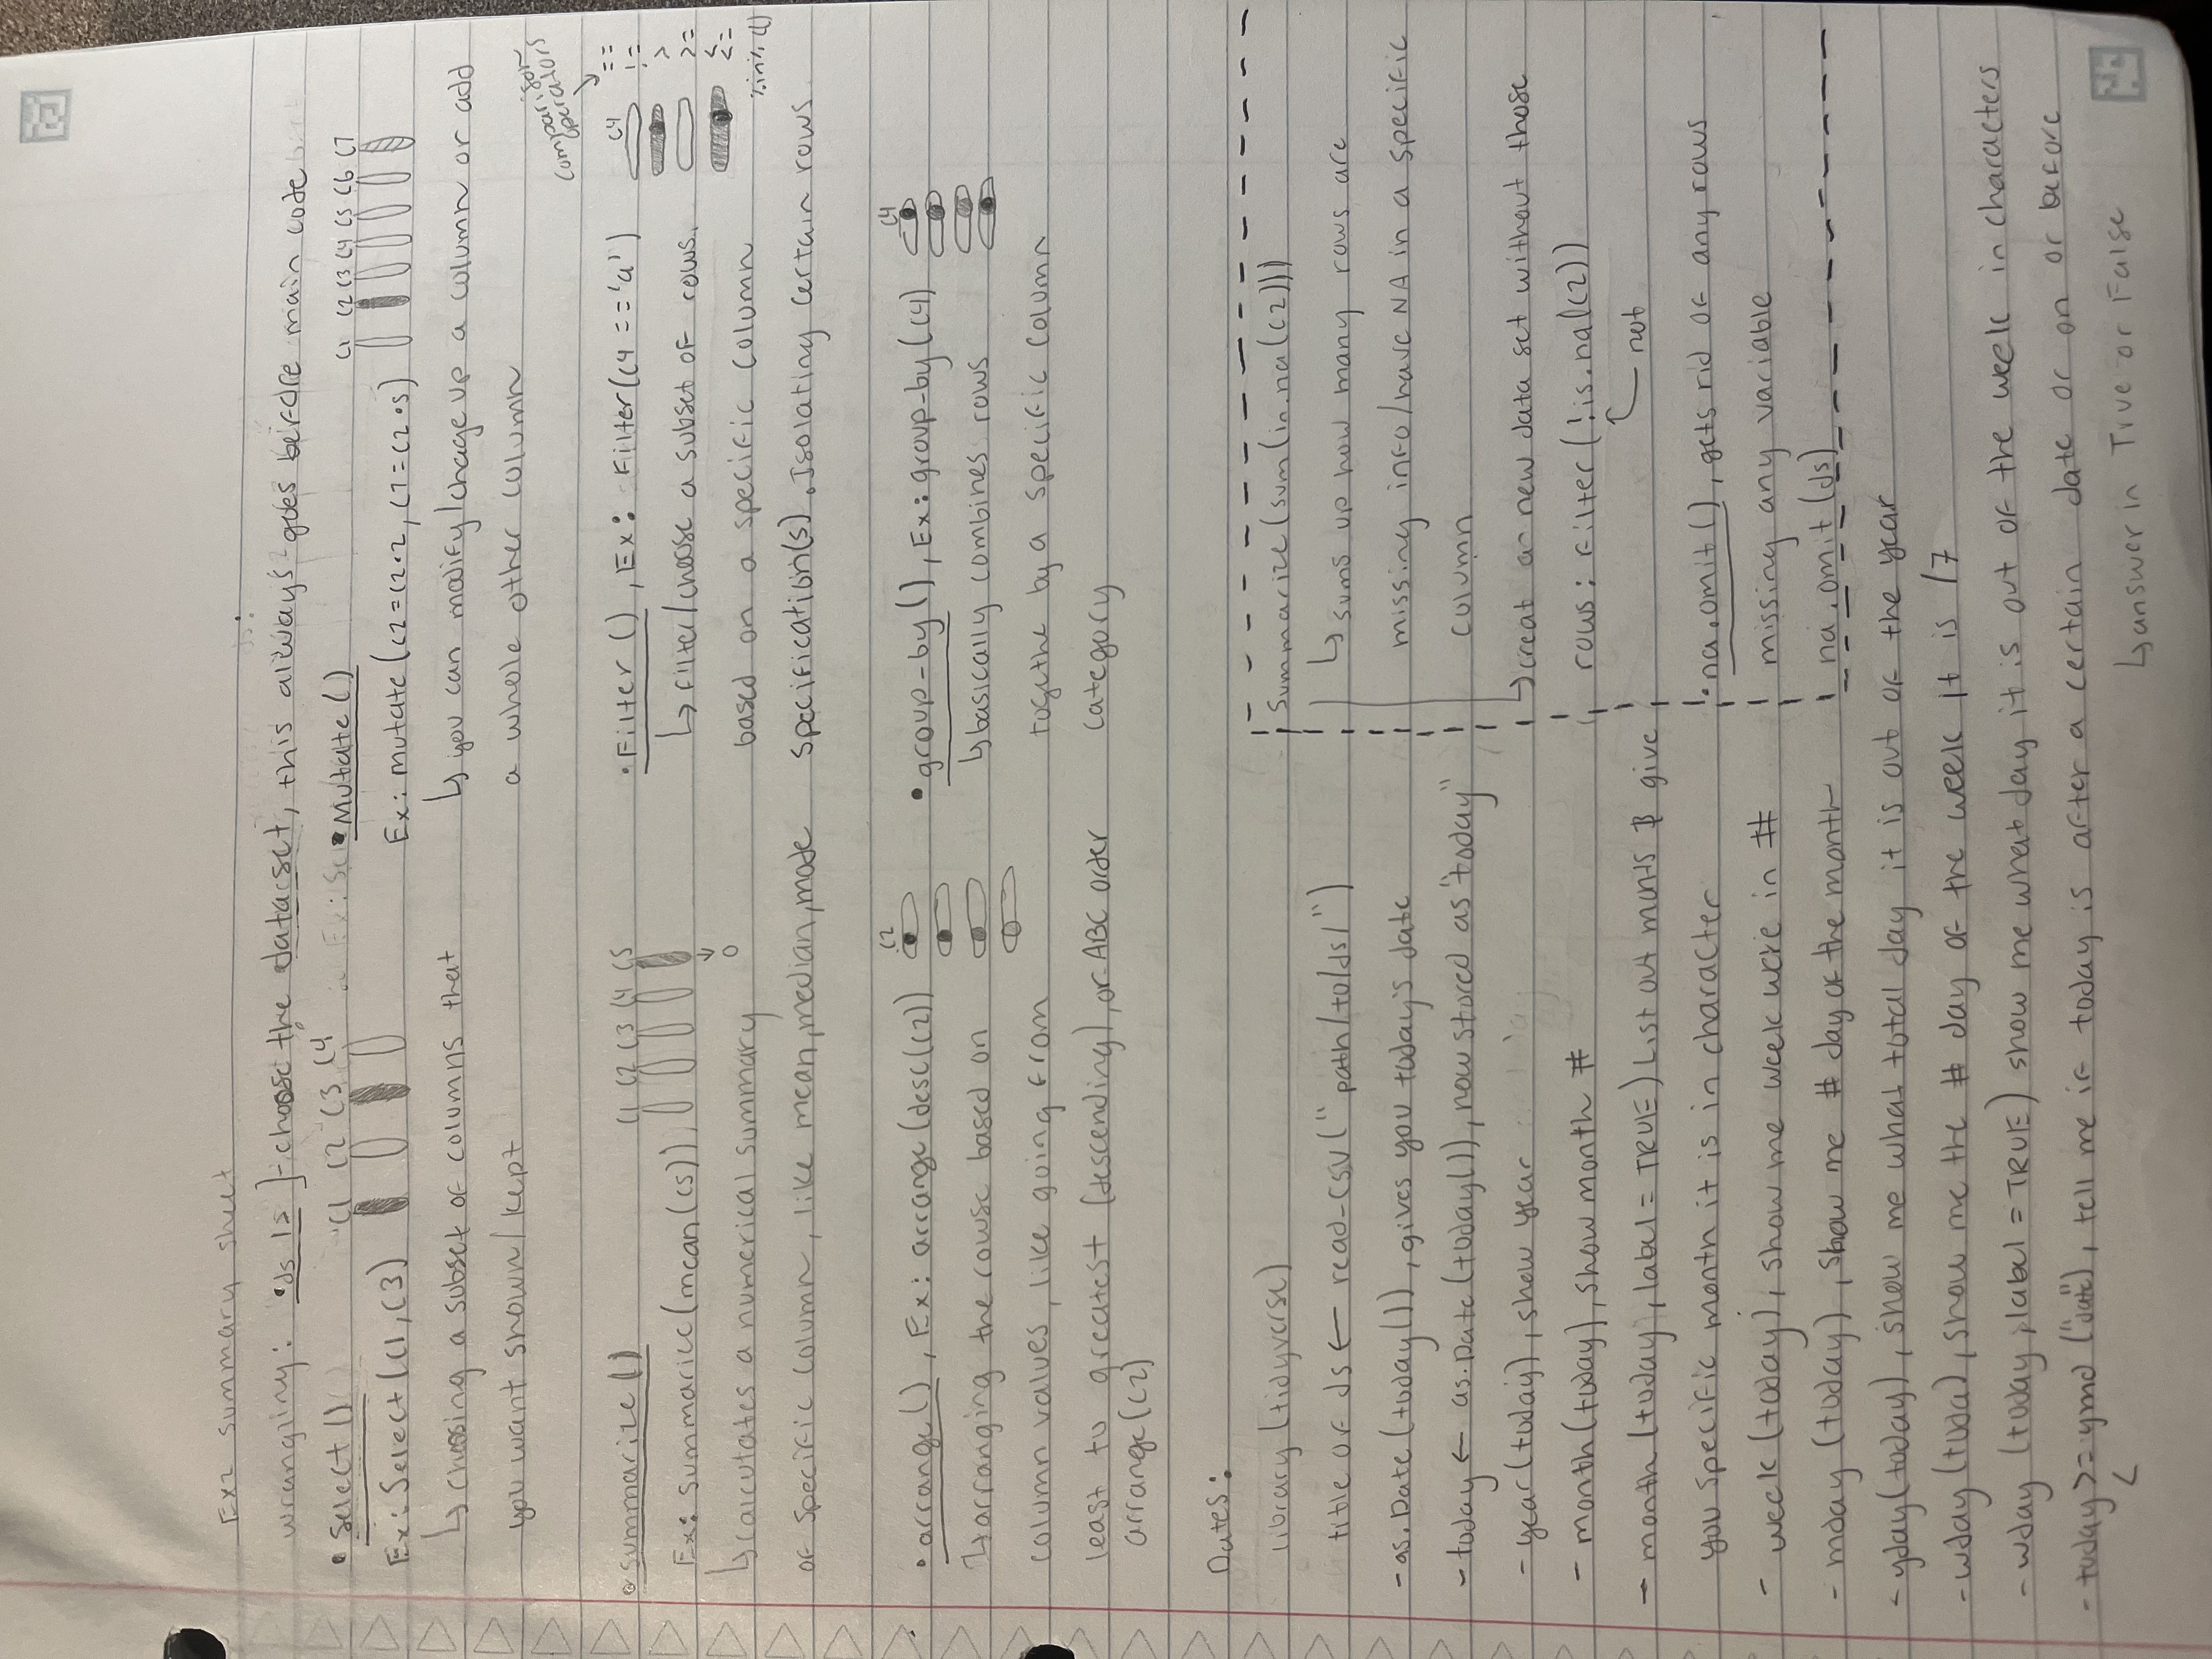 Ex2 summary sheet
wrangling: •ds |> ]-choose the dataset, this always goes before main code
• Select() C1 C2 C3 C4
Ex: Select(C1, C3)
↳ choosing a subset of columns that
you want shown/kept
• Mutate() C1 C2 C3 C4 C5 C6 C7
Ex: mutate(C2=C2•2, C7=C2•5)
↳ you can modify/chage up a column or add
a whole other column
• summarize() C1 C2 C3 C4 C5
Ex: summarize(mean(C5))
↳ calculates a numerical summary
of specific column, like mean, median, mode
• Filter(), Ex: Filter(C4 == 'a') C4
↳ filter/choose a subset of rows
based on a specific column
specification(s). Isolating certain rows
comparison
operators
==
!=
>
>=
<
<=
%in% c()
• arrange(), Ex: arrange(desc(C2)) C2
↳ arranging the rows based on
column values, like going from
least to greatest (descending), or ABC order
arrange(C2)
• group-by(), Ex: group-by(C4) C4
↳ basically combines rows
togethe by a specific column
category
Dates:
library(tidyverse)
title of ds ← read-csv("path/to/ds/")
- as.Date(today()), gives you today's date
- today ← as.Date(today()), now stored as "today"
- year(today), show year
- month(today), show month #
- month(today, label = TRUE) List out monts & give
you specific month it is in character
- week(today), show me week were in #
- mday(today), show me # day of the month
- yday(today), show me what total day it is out of the year
- wday(toda), show me the # day of the week it is /7
- wday(today, label = TRUE) show me what day it is out of the week in characters
- today >= ymd("date"), tell me if today is after a certain date or on or before
<
↳ answer in True or False
Summarize(sum(in.na(C2)))
↳ sums up how many rows are
missing info/have NA in a specific
column
↳ creat a new data set without those
rows: Filter(!is.na(C2))
not
• na.omit(), gets rid of any rows
missing any variable
na.omit(ds)